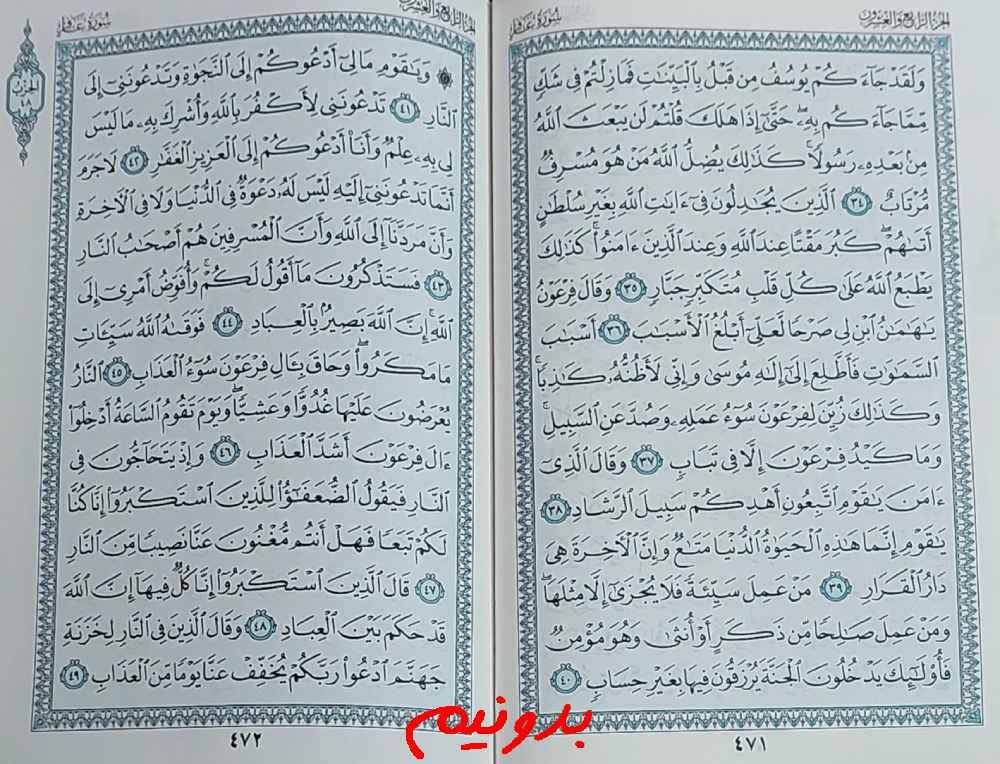 الجزء الرابع والعشرون
سورة غافر
وَلَقَدْ جَآءَكُمْ يُوسُفُ مِن قَبْلُ بِٱلْبَيِّنَٰتِ فَمَا زِلْتُمْ فِى شَكٍّ
مِّمَّا جَآءَكُم بِهِۦ حَتَّىٰٓ إِذَا هَلَكَ قُلْتُمْ لَن يَبْعَثَ ٱللَّهُ
مِنۢ بَعْدِهِۦ رَسُولًا ۚ كَذَٰلِكَ يُضِلُّ ٱللَّهُ مَنْ هُوَ مُسْرِفٌ
مُّرْتَابٌ ٣٤ ٱلَّذِينَ يُجَٰدِلُونَ فِىٓ ءَايَٰتِ ٱللَّهِ بِغَيْرِ سُلْطَٰنٍ
أَتَىٰهُمْ ۖ كَبُرَ مَقْتًا عِندَ ٱللَّهِ وَعِندَ ٱلَّذِينَ ءَامَنُوا۟ ۚ كَذَٰلِكَ
يَطْبَعُ ٱللَّهُ عَلَىٰ كُلِّ قَلْبِ مُتَكَبِّرٍ جَبَّارٍ ٣٥ وَقَالَ فِرْعَوْنُ
يَٰهَٰمَٰنُ ٱبْنِ لِى صَرْحًا لَّعَلِّىٓ أَبْلُغُ ٱلْأَسْبَٰبَ ٣٦ أَسْبَٰبَ
ٱلسَّمَٰوَٰتِ فَأَطَّلِعَ إِلَىٰٓ إِلَٰهِ مُوسَىٰ وَإِنِّى لَأَظُنُّهُۥ كَٰذِبًا ۚ
وَكَذَٰلِكَ زُيِّنَ لِفِرْعَوْنَ سُوٓءُ عَمَلِهِۦ وَصُدَّ عَنِ ٱلسَّبِيلِ ۚ
وَمَا كَيْدُ فِرْعَوْنَ إِلَّا فِى تَبَابٍ ٣٧ وَقَالَ ٱلَّذِىٓ
ءَامَنَ يَٰقَوْمِ ٱتَّبِعُونِ أَهْدِكُمْ سَبِيلَ ٱلرَّشَادِ ٣٨
يَٰقَوْمِ إِنَّمَا هَٰذِهِ ٱلْحَيَوٰةُ ٱلدُّنْيَا مَتَٰعٌ وَإِنَّ ٱلْءَاخِرَةَ هِىَ
دَارُ ٱلْقَرَارِ ٣٩ مَنْ عَمِلَ سَيِّئَةً فَلَا يُجْزَىٰٓ إِلَّا مِثْلَهَا ۖ
وَمَنْ عَمِلَ صَٰلِحًا مِّن ذَكَرٍ أَوْ أُنثَىٰ وَهُوَ مُؤْمِنٌ
فَأُو۟لَٰٓئِكَ يَدْخُلُونَ ٱلْجَنَّةَ يُرْزَقُونَ فِيهَا بِغَيْرِ حِسَابٍ ٤٠
٤٧١
الجزء الرابع والعشرون
سورة غافر
الحزب
٤٨
۞ وَيَٰقَوْمِ مَا لِىٓ أَدْعُوكُمْ إِلَى ٱلنَّجَوٰةِ وَتَدْعُونَنِىٓ إِلَى
ٱلنَّارِ ٤١ تَدْعُونَنِى لِأَكْفُرَ بِٱللَّهِ وَأُشْرِكَ بِهِۦ مَا لَيْسَ
لِى بِهِۦ عِلْمٌ وَأَنَا۠ أَدْعُوكُمْ إِلَى ٱلْعَزِيزِ ٱلْغَفَّٰرِ ٤٢ لَا جَرَمَ
أَنَّمَا تَدْعُونَنِىٓ إِلَيْهِ لَيْسَ لَهُۥ دَعْوَةٌ فِى ٱلدُّنْيَا وَلَا فِى ٱلْءَاخِرَةِ
وَأَنَّ مَرَدَّنَآ إِلَى ٱللَّهِ وَأَنَّ ٱلْمُسْرِفِينَ هُمْ أَصْحَٰبُ ٱلنَّارِ
٤٣ فَسَتَذْكُرُونَ مَآ أَقُولُ لَكُمْ ۚ وَأُفَوِّضُ أَمْرِىٓ إِلَى
ٱللَّهِ ۚ إِنَّ ٱللَّهَ بَصِيرٌۢ بِٱلْعِبَادِ ٤٤ فَوَقَىٰهُ ٱللَّهُ سَيِّـَٔاتِ
مَا مَكَرُوا۟ ۖ وَحَاقَ بِـَٔالِ فِرْعَوْنَ سُوٓءُ ٱلْعَذَابِ ٤٥ ٱلنَّارُ
يُعْرَضُونَ عَلَيْهَا غُدُوًّا وَعَشِيًّا ۖ وَيَوْمَ تَقُومُ ٱلسَّاعَةُ أَدْخِلُوٓا۟
ءَالَ فِرْعَوْنَ أَشَدَّ ٱلْعَذَابِ ٤٦ وَإِذْ يَتَحَآجُّونَ فِى
ٱلنَّارِ فَيَقُولُ ٱلضُّعَفَٰٓؤُا۟ لِلَّذِينَ ٱسْتَكْبَرُوٓا۟ إِنَّا كُنَّا
لَكُمْ تَبَعًا فَهَلْ أَنتُم مُّغْنُونَ عَنَّا نَصِيبًا مِّنَ ٱلنَّارِ
٤٧ قَالَ ٱلَّذِينَ ٱسْتَكْبَرُوٓا۟ إِنَّا كُلٌّ فِيهَآ إِنَّ ٱللَّهَ
قَدْ حَكَمَ بَيْنَ ٱلْعِبَادِ ٤٨ وَقَالَ ٱلَّذِينَ فِى ٱلنَّارِ لِخَزَنَةِ
جَهَنَّمَ ٱدْعُوا۟ رَبَّكُمْ يُخَفِّفْ عَنَّا يَوْمًا مِّنَ ٱلْعَذَابِ ٤٩
٤٧٢
بدونیم